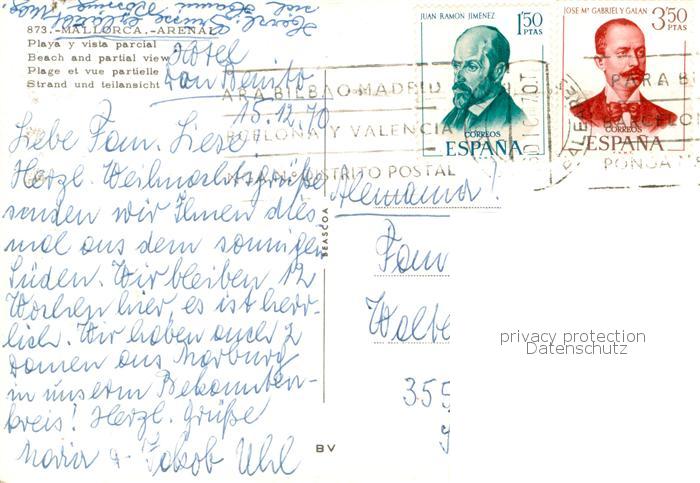 Herzl. Grüsse
873.-MALLORCA.-ARENAL
Playa y vista parcial
Beach and partial view
Plage et vue partielle
Strand und teilansicht
Hotel
San Benito
15.12.70
Liebe Fam. Liese
Herzl. Weihnachtsgrüße
senden wir Ihnen dies
mal aus dem sonnigen
Süden. Wir bleiben 12
Wochen hier, es ist herr-
lich. Wir haben auch 2
Damen aus Marburg
in unserm Bekannten-
kreis! Herzl. Grüße
Maria u. Jakob Uhl
BEASCOA
BV
JUAN RAMON JIMENEZ
1'50
PTAS
CORREOS
ESPAÑA
JOSE Mª GABRIEL Y GALAN
3'50
PTAS
CORREOS
ESPAÑA
PARA BILBAO-MADRID
BARCELONA Y VALENCIA
DISTRITO POSTAL
BALEARES
PARA BI
BARCELON
PONGA
Alemania!
Fam
Walte
355
privacy protection
Datenschutz